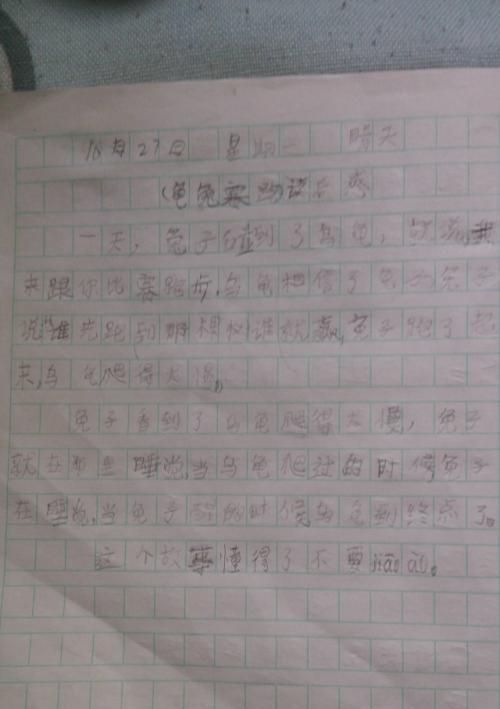 10月27日 星期二 晴天
《龟兔赛跑》读后感
一天，兔子碰到了乌龟，就说我
来跟你比赛跑步。乌龟相信了兔子
说"谁先跑到那棵树谁就赢。兔子跑了起
来，乌龟爬得太慢。
兔子看到了乌龟爬得太慢，兔子
就在那里睡觉。当乌龟爬过的时候兔子
在睡觉。当兔子醒的时候乌龟到终点了。
这个故事懂得了不要jiāo ào。